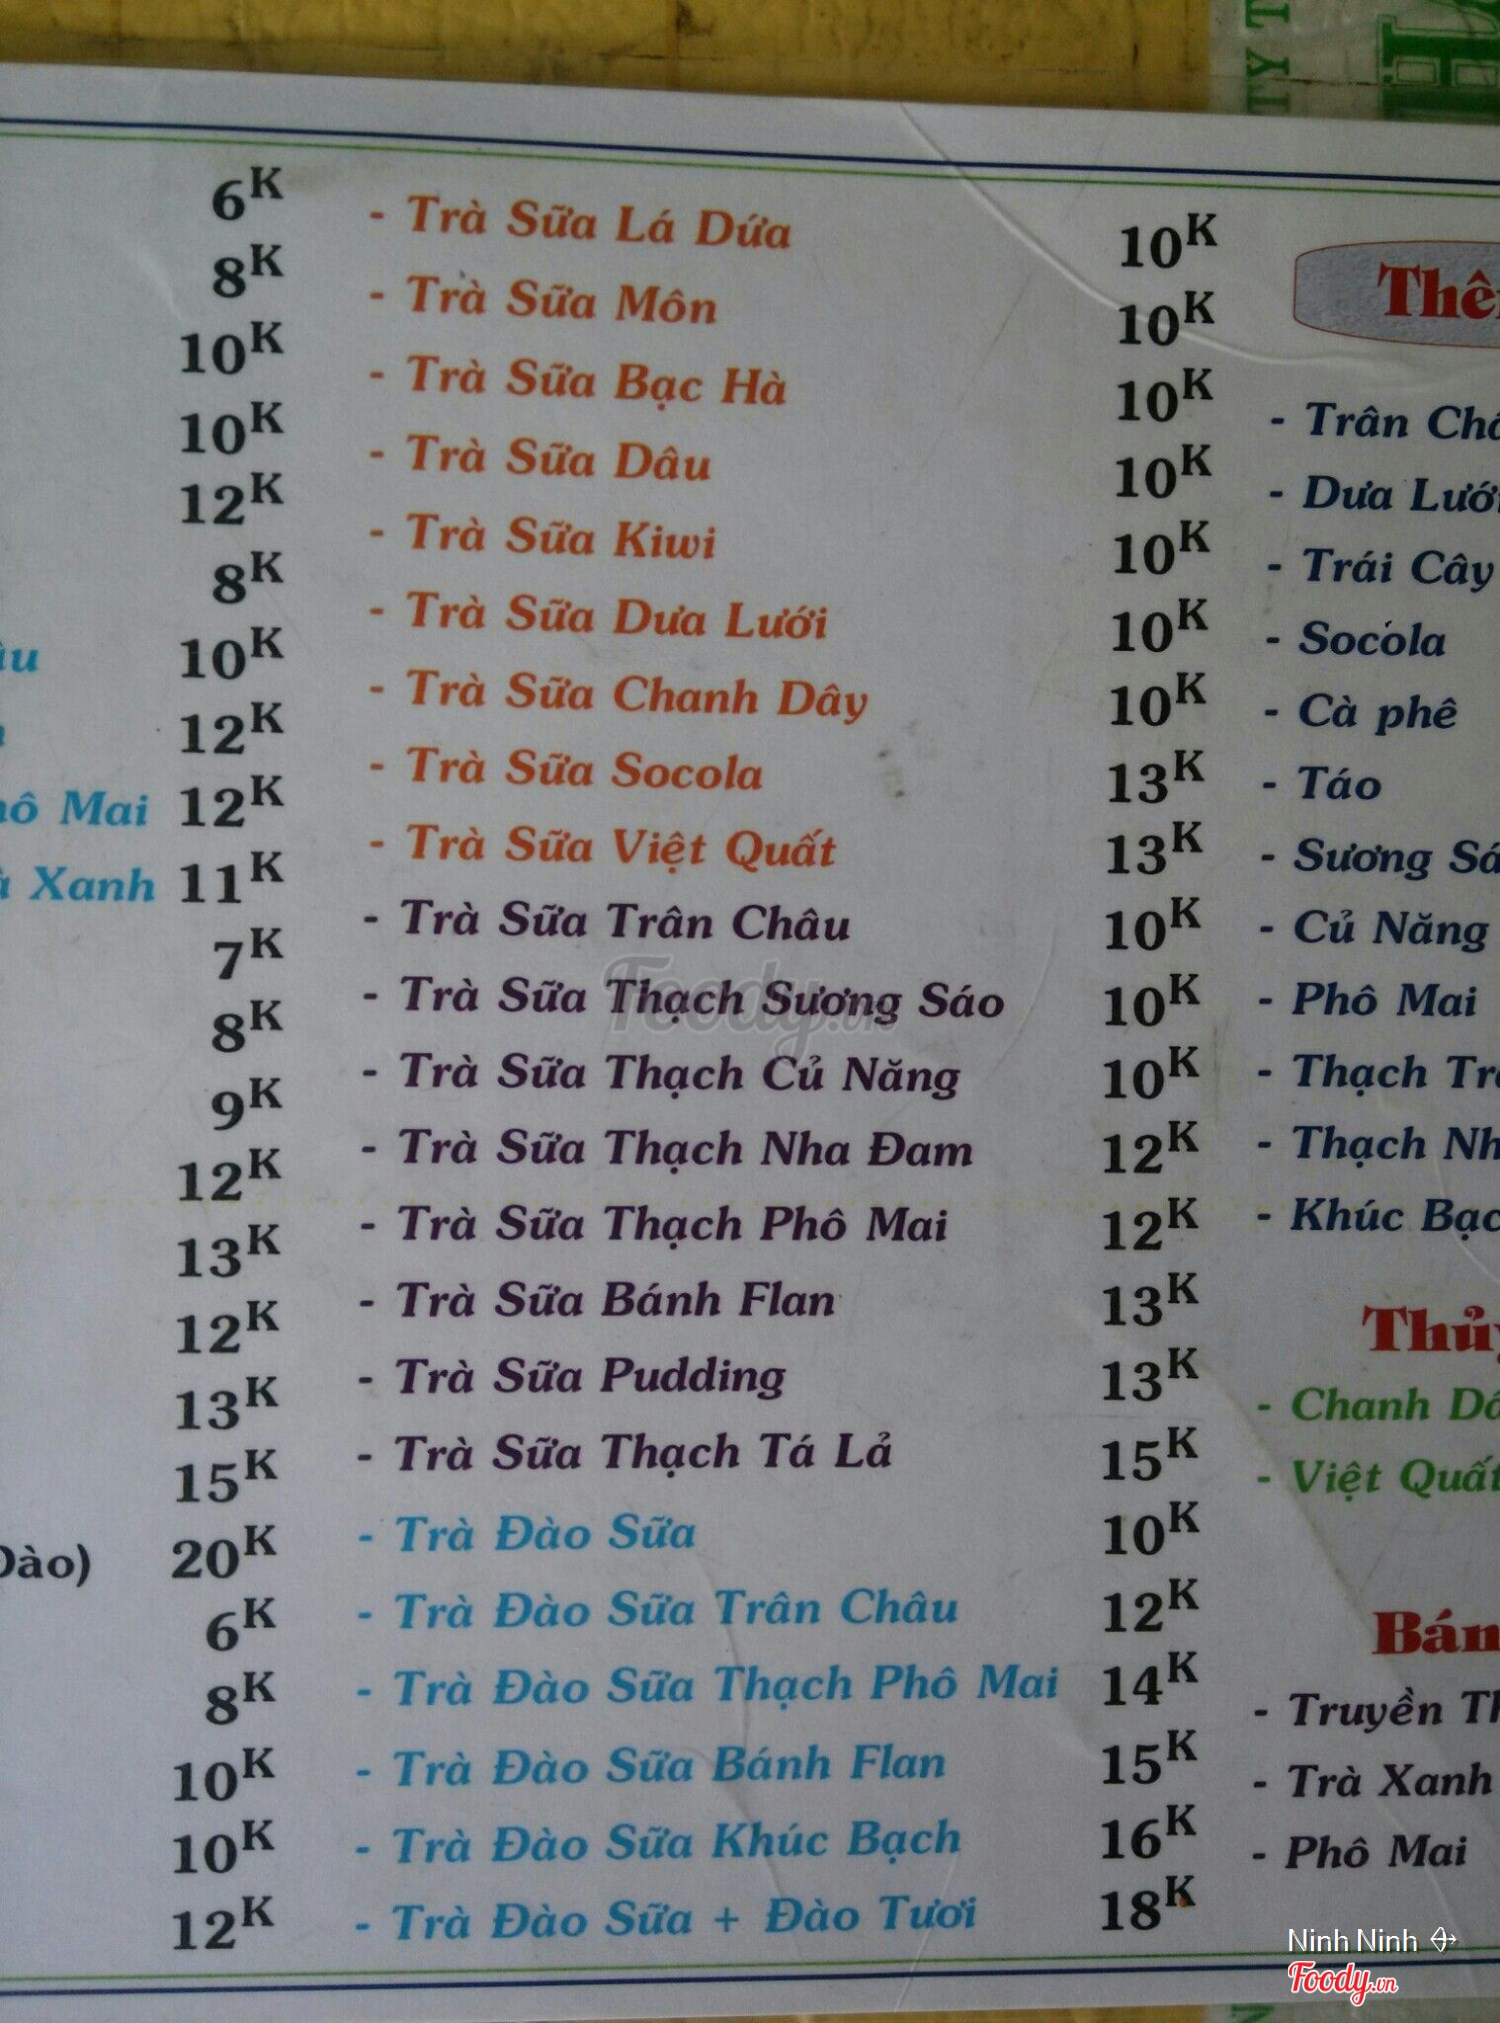 6K
8K
10K
10K
12K
8K
10K
12K
hô Mai 12K
Xanh 11K
7K
8K
9K
12K
13K
12K
13K
15K
Đào) 20K
6K
8K
10K
10K
12K
- Trà Sữa Lá Dứa 10K
- Trà Sữa Môn 10K
- Trà Sữa Bạc Hà 10K
- Trà Sữa Dâu 10K
- Trà Sữa Kiwi 10K
- Trà Sữa Dưa Lưới 10K
- Trà Sữa Chanh Dây 10K
- Trà Sữa Socola 13K
- Trà Sữa Việt Quất 13K
- Trà Sữa Trân Châu 10K
- Trà Sữa Thạch Sương Sáo 10K
- Trà Sữa Thạch Củ Năng 10K
- Trà Sữa Thạch Nha Đam 12K
- Trà Sữa Thạch Phô Mai 12K
- Trà Sữa Bánh Flan 13K
- Trà Sữa Pudding 13K
- Trà Sữa Thạch Tá Lả 15K
- Trà Đào Sữa 10K
- Trà Đào Sữa Trân Châu 12K
- Trà Đào Sữa Thạch Phô Mai 14K
- Trà Đào Sữa Bánh Flan 15K
- Trà Đào Sữa Khúc Bạch 16K
- Trà Đào Sữa + Đào Tươi 18K
Thê
- Trân Châ
- Dưa Lưới
- Trái Cây
- Socola
- Cà phê
- Táo
- Sương Sá
- Củ Năng
- Phô Mai
- Thạch Tr
- Thạch Nh
- Khúc Bạc
Thủy
- Chanh Dâ
- Việt Quất
Bán
- Truyền Th
- Trà Xanh
- Phô Mai
Foody.vn
Ninh Ninh
Foody.vn